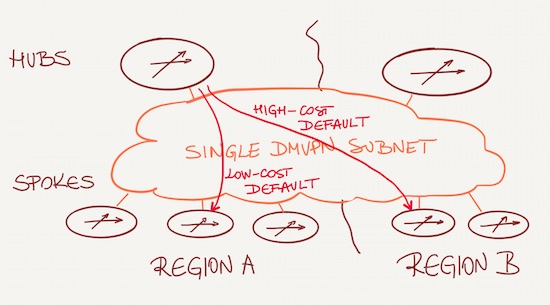 HUBS
HIGH-COST
DEFAULT
SINGLE DMVPN SUBNET
LOW-COST
DEFAULT
SPOKES
REGION A
REGION B